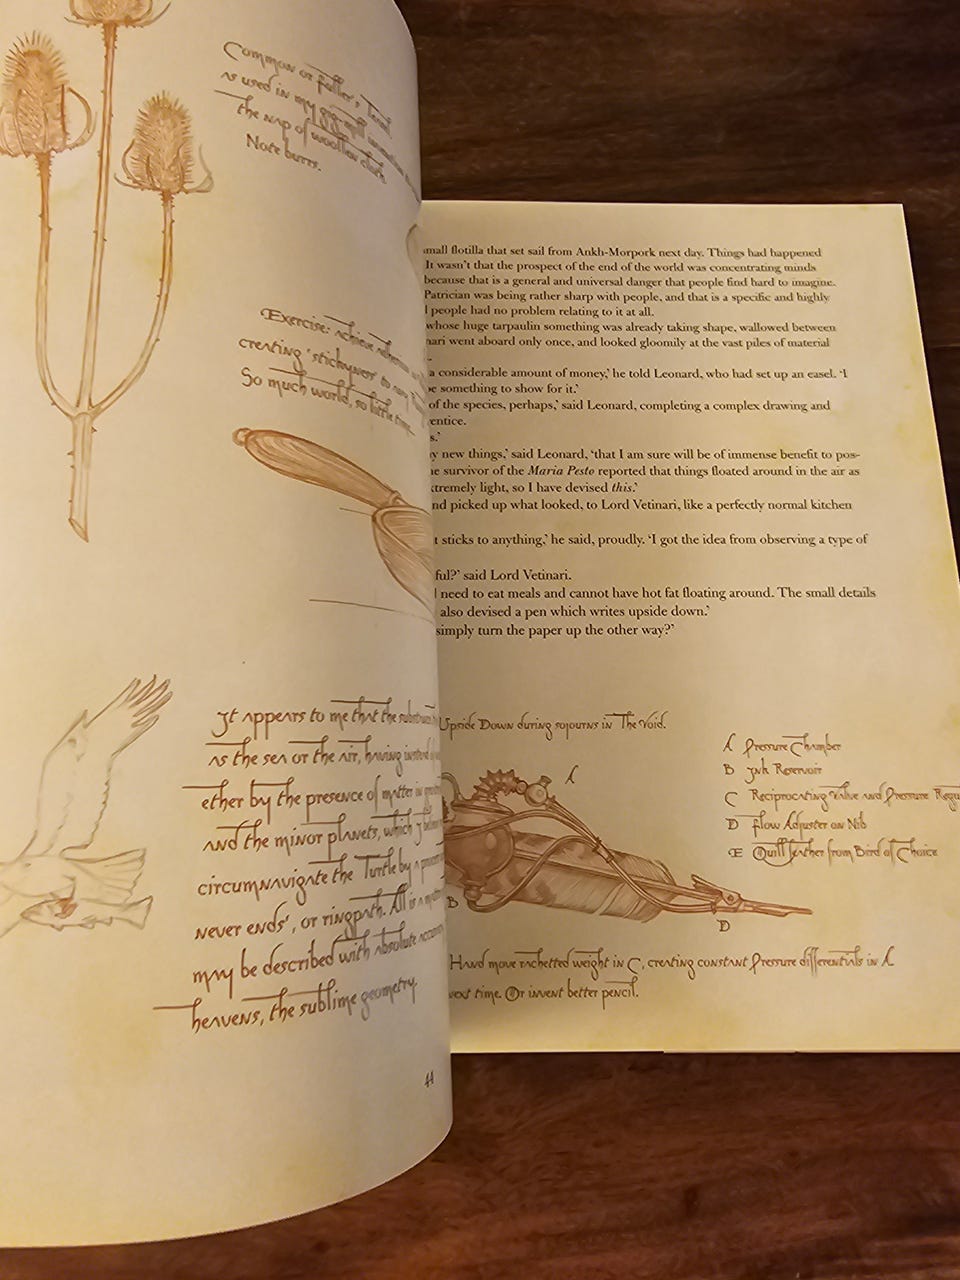 Common or Fuller's Teasel
as used in my gig-mill
the nap of woollen cloth
Note burrs.
Exercise: achieve adhesion
creating 'stickyness' to
So much world, so little time...
It appears to me that the
as the sea or the air, having instead
ether by the presence of matter in
And the minor planets, which I
circumnavigate the Turtle by a
never ends', or ringpath. All is a
may be described with absolute
heavens, the sublime geometry.
44
small flotilla that set sail from Ankh-Morpork next day. Things had happened
It wasn't that the prospect of the end of the world was concentrating minds
because that is a general and universal danger that people find hard to imagine.
Patrician was being rather sharp with people, and that is a specific and highly
people had no problem relating to it at all.
whose huge tarpaulin something was already taking shape, wallowed between
nari went aboard only once, and looked gloomily at the vast piles of material
a considerable amount of money,' he told Leonard, who had set up an easel. 'I
be something to show for it.'
of the species, perhaps,' said Leonard, completing a complex drawing and
entice.
s.'
y new things,' said Leonard, 'that I am sure will be of immense benefit to pos-
e survivor of the Maria Pesto reported that things floated around in the air as
xtremely light, so I have devised this.'
nd picked up what looked, to Lord Vetinari, like a perfectly normal kitchen
t sticks to anything,' he said, proudly. 'I got the idea from observing a type of
ful?' said Lord Vetinari.
need to eat meals and cannot have hot fat floating around. The small details
also devised a pen which writes upside down.'
simply turn the paper up the other way?'
Upside Down during sojourns in The Void.
A
B
D
A Pressure Chamber
B Ink Reservoir
C Reciprocating Valve and Pressure Regu
D Flow Adjuster on Nib
E Quill feather from Bird of Choice
Hand move rachetted weight in C, creating constant Pressure differentials in A
next time. Or invent better pencil.